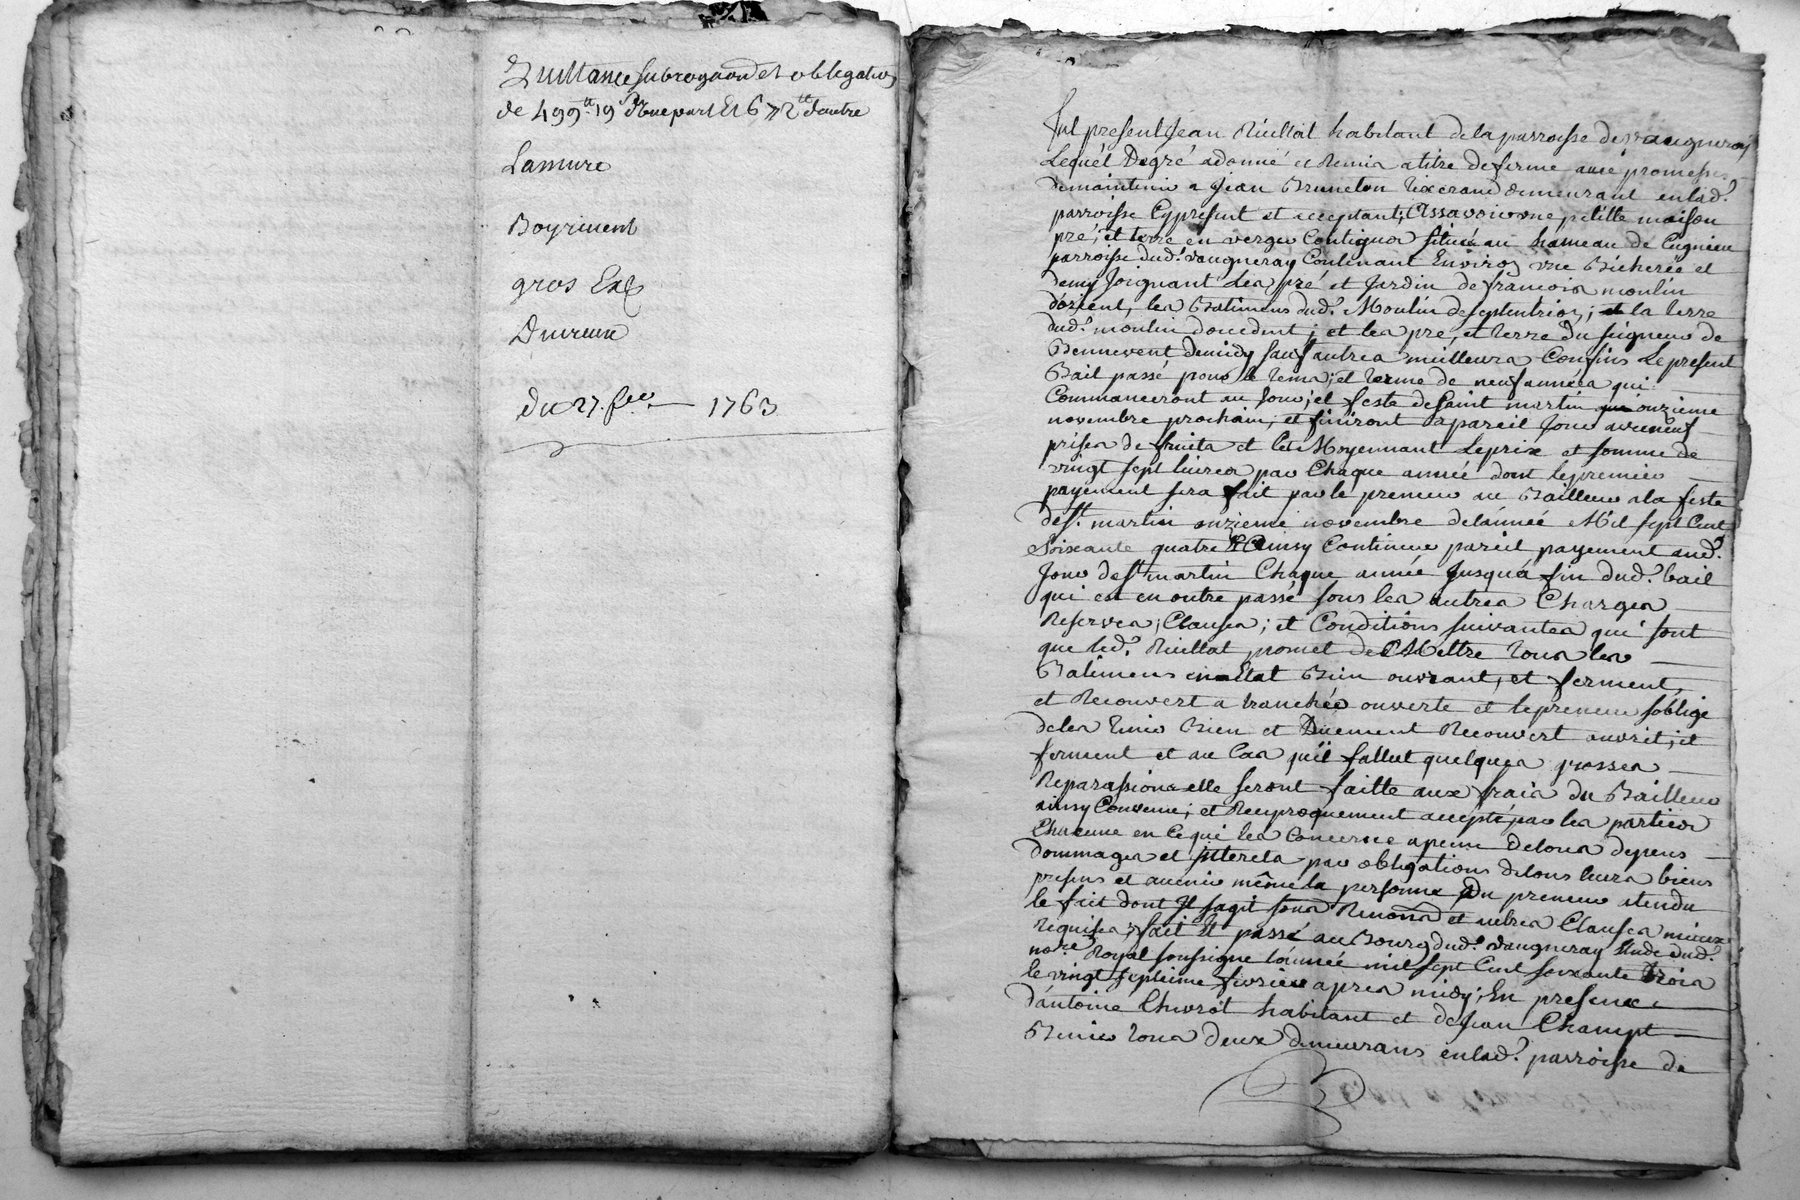 Quittance subrogaon et obligation
de 499tt 19s d'une part Et 672tt d'autre
Lamure
Boyrivent
gros Exp
Duvreux
du 27. fer 1763
fut present Jean Riultat habitant de la parroisse de vaugneray
Lequel De gré a donné et Remis a titre de ferme avec promesse
de maintenir a Jean Bruneton tixerand demeurant en lad.e
parroisse Cy present et acceptant, Assavoir une petitte maison
pré, et terre en verger Contigus situé au hameau de
parroisse dud.t vaugneray Contenant Environ une Bicherée et
demy Joignant Les pré et Jardin de francois moulin
d'orient, les Batimens dud.t Moulin de septentrion; et la terre
dud.t moulin d'occident; et les pré, et terre du seigneur de
Bennevent de midy sauf autres meilleurs Confins Le present
Bail passé pour le tems, et terme de neuf années qui
Commanceront au jour, et feste de saint martin onzieme
novembre prochain, et finiront a pareil Jour
prises de fruits et Ce Moyennant Le prix et somme de
vingt sept livres par Chaque année dont le premier
payement sera fait par le preneur au Bailleur a la feste
de st martin onzieme novembre de l'année Mil sept Cent
Soixante quatre Et Ainsy Continuer pareil payement aud.t
Jour de st martin Chaque année Jusqu'a fin dud.t bail
qui est en outre passé sous les autres Charges
Reserves, Clauses, et Conditions suivantes qui sont
que led.t Riultat promet de Mettre tous les
Batimens en Etat Bien ouvrant, et ferment,
et Recouvert a tranchée ouverte et le preneur s'oblige
de les tenir Bien et Duement Recouvert ouvrit, et
ferment et au Cas qu'il fallut quelques grosses
Reparassions elle seront faitte aux frais du Bailleur
ainsy Convenu; et Reciproquement accepté par les parties
Chacune en Ce qui les Concerne a peine de tous depens
dommages et Interets par obligations de tous leurs biens
presens et avenir même la personne Du preneur atendu
le fait dont Il s'agit sous Renonon et autres Clauses mieux
Requises, fait Et passé au Bourg dud.t vaugneray Etude dud.t
no.re Royal soussigné l'année mil sept Cent soixante trois
le vingt septieme fevrier apres midy; En presence
d'antoine habitant et de Jean Champt
tous deux demeurans en lad.e parroisse de